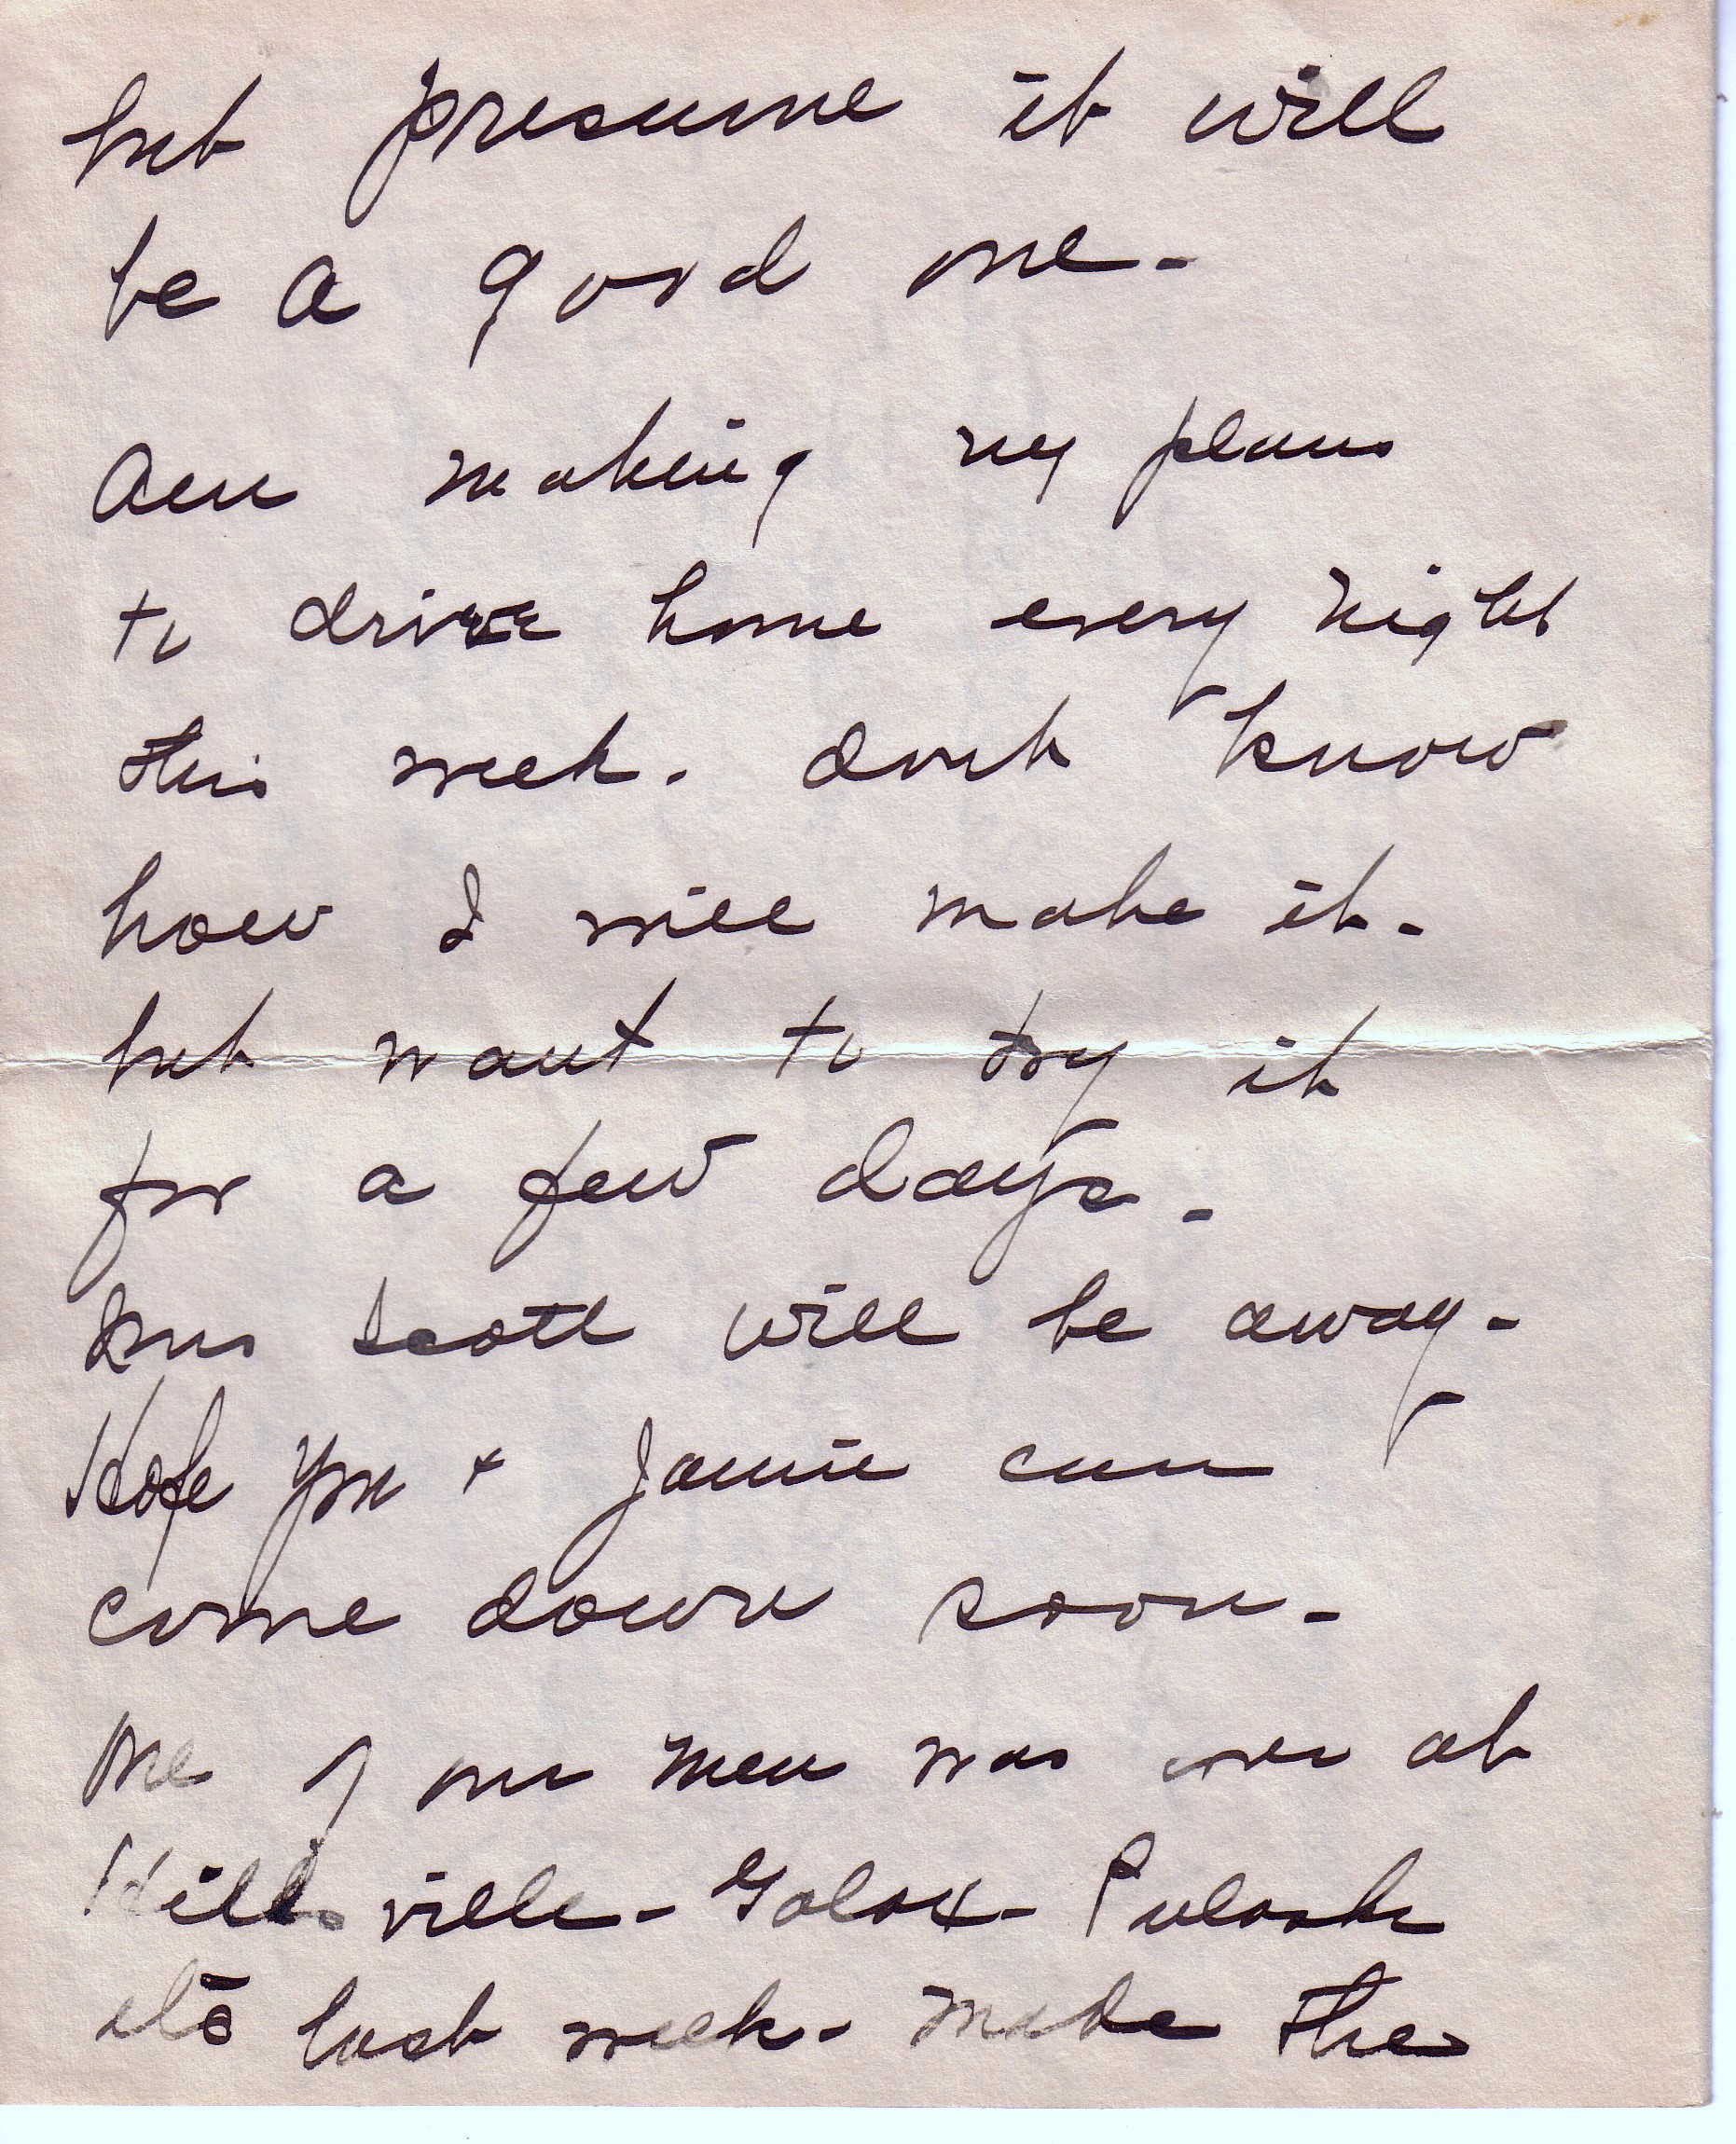 but presume it will
be a good one -
Am making my plans
to drive home every night
this week. dont know
how I will make it -
but want to try it
for a few days -
Scott will be away -
Hope you + Jamie can
come down soon -
One of our men was over at
Hillsville - Galax - Pulaski
etc last week - made the